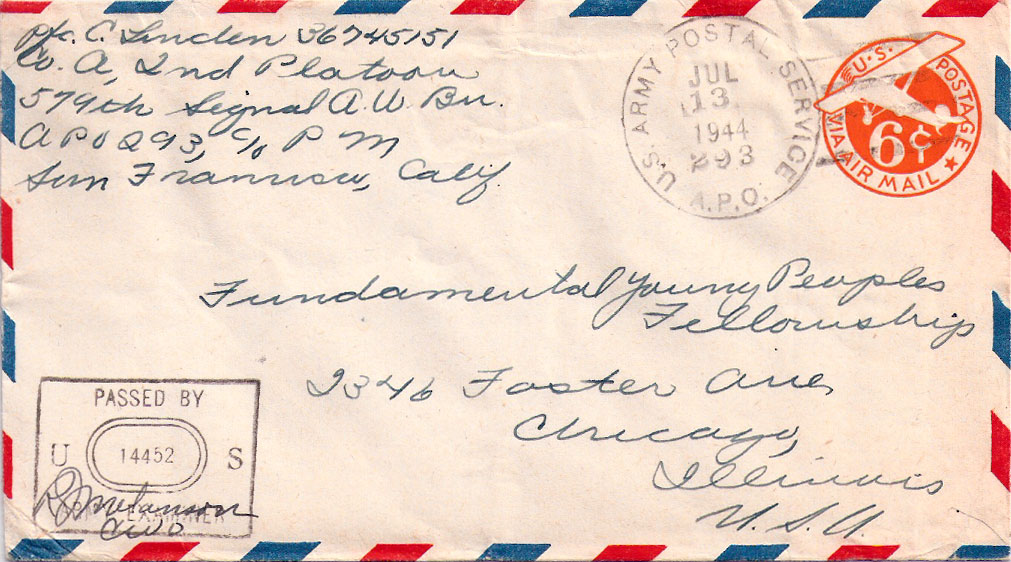 Pfc. C. Linden 36745151
Co. A, 2nd Platoon
579th Signal A.W. Bn.
APO 293, c/o P M
San Francisco, Calif
U.S. ARMY POSTAL SERVICE
JUL
13
1944
293
A.P.O.
U.S. POSTAGE
6¢
VIA AIR MAIL
Fundamental Young Peoples
Fellowship
2346 Foster Ave,
Chicago,
Illinois
U.S.A.
PASSED BY
U 14452 S
ARMY EXAMINER
CWO